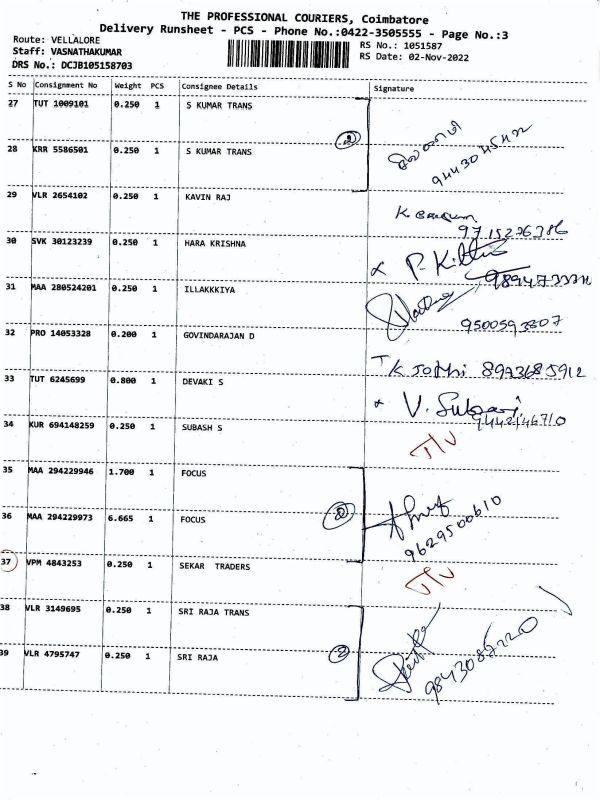 THE PROFESSIONAL COURIERS, Coimbatore
Delivery Runsheet - PCS - Phone No.:0422-3505555 - Page No.:3
Route: VELLALORE
RS No.: 1051587
Staff: VASNATHAKUMAR
RS Date: 02-Nov-2022
DRS No.: DCJB105158703
S No Consignment No Weight PCS Consignee Details Signature
27 TUT 1009101 0.250 1 S KUMAR TRANS
28 KRR 5586501 0.250 1 S KUMAR TRANS
29 VLR 2654102 0.250 1 KAVIN RAJ
9715276386
30 SVK 30123239 0.250 1 HARA KRISHNA
31 MAA 280524201 0.250 1 ILLAKKKIYA
9500593307
32 PRO 14053328 0.200 1 GOVINDARAJAN D
K JOTHI 8973685912
33 TUT 6245699 0.800 1 DEVAKI S
34 KUR 694148259 0.250 1 SUBASH S
35 MAA 294229946 1.700 1 FOCUS
36 MAA 294229973 6.665 1 FOCUS
9629500610
37 VPM 4843253 0.250 1 SEKAR TRADERS
38 VLR 3149695 0.250 1 SRI RAJA TRANS
39 VLR 4795747 0.250 1 SRI RAJA